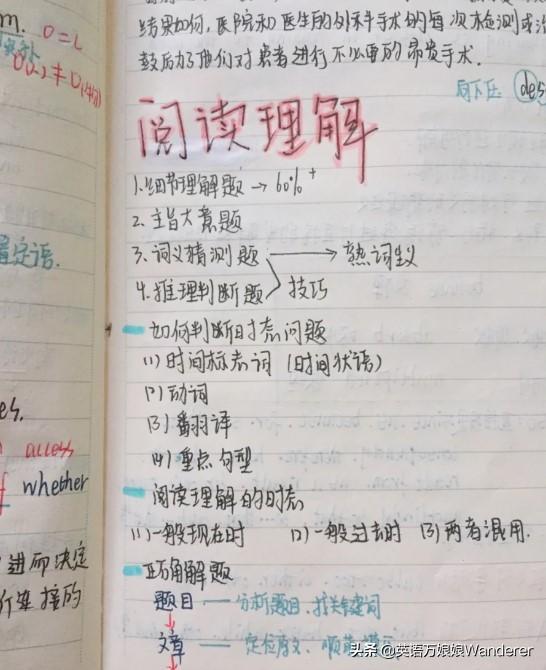 m. O=L
结果如何,医院和医生的外科手术的每次检测或治
鼓励了他们对患者进行不必要的昂贵手术.
des
阅读理解
1.细节理解题 → 60%+
2.主旨大意题
3.词义猜测题 → 熟词生义
4.推理判断题 技巧
如何判断时态问题
(1)时间标志词 (时间状语)
(2)动词
(3)翻译
(4)重点句型
es.
access
whether
阅读理解的时态
(1)一般现在时 (2)一般过去时 (3)两者混用.
置定语.
进而决定
正确解题
题目 — 分析题目,找关键词
文章 — 定位原文、
连接的
头条 @英语万娘娘Wanderer